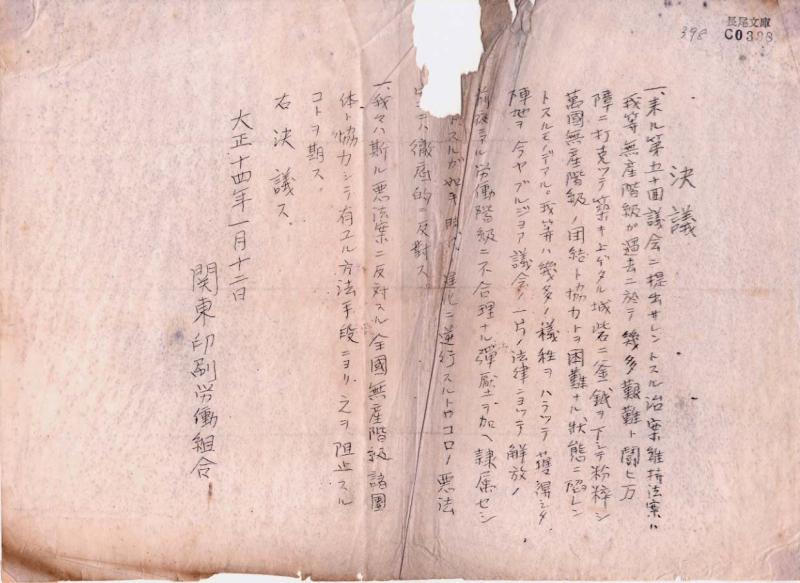 長尾文庫
C0398
398
決議
一、来ル第五十回議会ニ提出サレントスル治案維持法案ハ
我等無産階級ガ過去ニ於テ幾多艱難ト闘ヒ万
障ニ打克ツテ築キ上ゲタル城砦ニ釜鉞ヲ下シテ粉粹シ
萬國無産階級ノ団結ト協力トヲ困難ナル状態ニ陥レン
トスルモノデアル。我等ハ幾多ノ犠牲ヲハラツテ獲得シタ
陣地ヲ今ヤブルジヨア議会ノ一片ノ法律ニヨツテ解放ノ
労働階級ニ不合理ナル彈壓ヲ加ヘ隷属セシ
トスルガ如キ時代ノ進化ニ逆行スルトコロノ悪法
ニハ徹底的ニ反對ス
一、我々ハ斯ル悪法案ニ反対スル全國無産階級諸團
体ト協力シテ有ユル方法手段ニヨリ之ヲ阻止スル
コトヲ期ス
右決議ス
大正十四年一月十二日
関東印刷労働組合